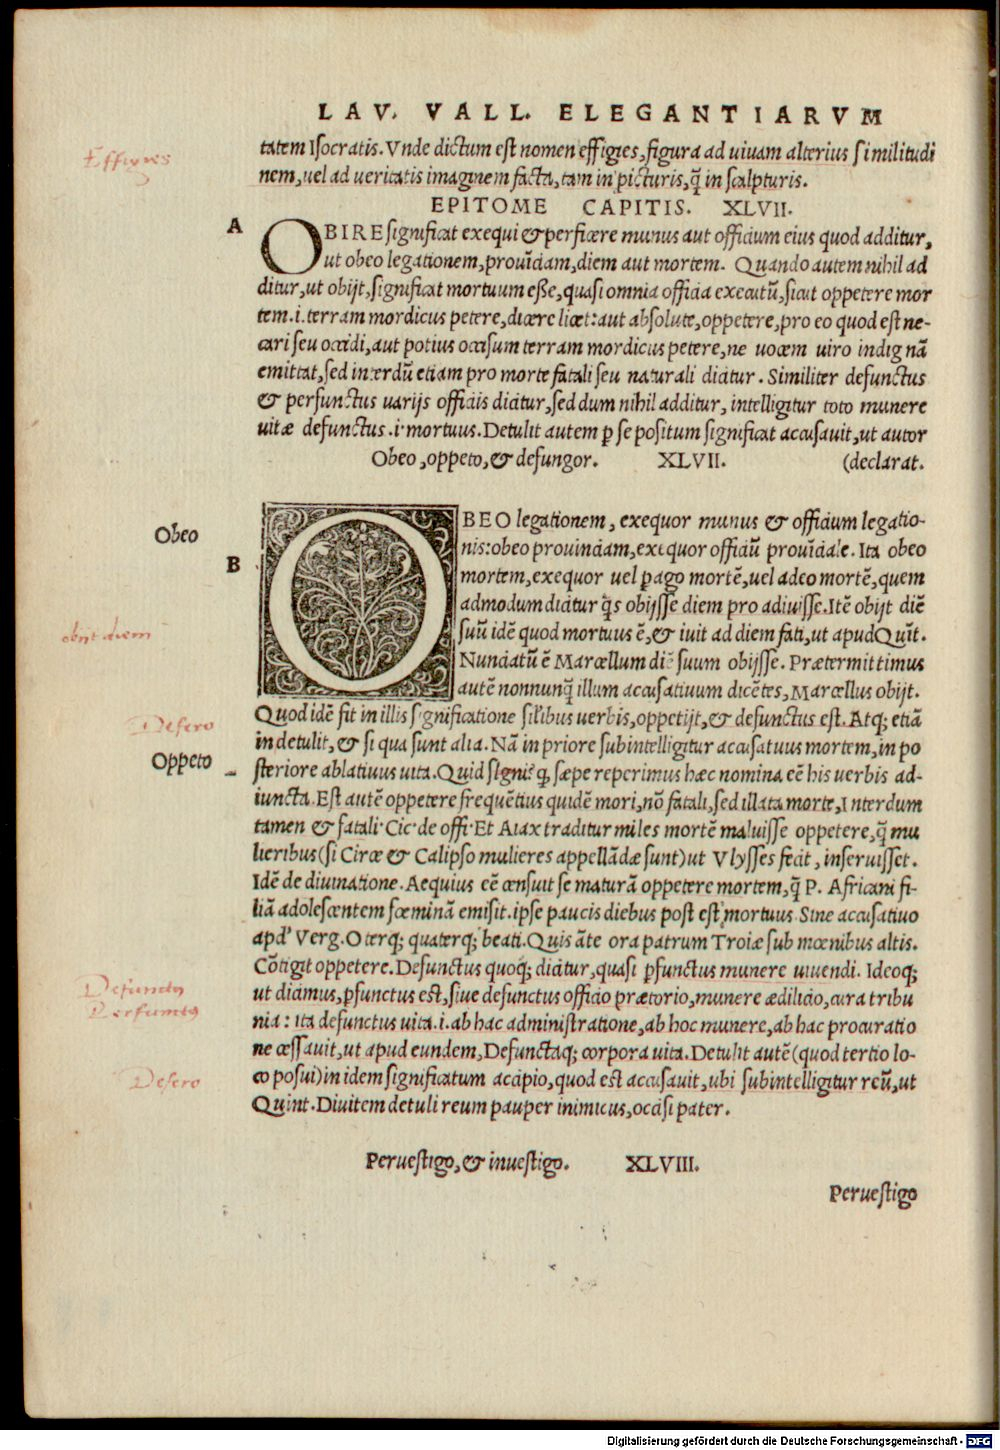 LAV. VALL. ELEGANTIARVM
Effigies
tatem Isocratis. Vnde dictum est nomen effigies, figura ad uiuam alterius similitudi
nem, uel ad ueritatis imaginem facta, tam in picturis, q̃ in scalpturis.
EPITOME CAPITIS. XLVII.
A
OBIRE significat exequi & perficere munus aut officium eius quod additur,
ut obeo legationem, prouĩciam, diem aut mortem. Quando autem nihil ad
ditur, ut obijt, significat mortuum esse, quasi omnia officia executũ, sicut oppetere mor
tem .i. terram mordicus petere, dicere licet: aut absolute, oppetere, pro eo quod est ne-
cari seu occidi, aut potius occisum terram mordicus petere, ne uocem uiro indignã
emittat, sed interdũ etiam pro morte fatali seu naturali dicitur. Similiter defunctus
& perfunctus uarijs officiis dicitur, sed dum nihil additur, intelligitur toto munere
uitæ defunctus .i. mortuus. Detulit autem ꝑ se positum significat accusauit, ut autor
Obeo, oppeto, & defungor. XLVII. (declarat.
Obeo
B
OBEO legationem, exequor munus & officium legatio-
nis: obeo prouinciam, exequor officiũ prouĩciale. Ita obeo
mortem, exequor uel ꝑago mortẽ, uel adeo mortẽ, quem
admodum dicitur q̃s obijsse diem pro adiuisse. Itẽ obijt diẽ
suũ idẽ quod mortuus ẽ, & iuit ad diem fati, ut apud Quĩt.
obijt diem
Nunciatũ ẽ Marcellum diẽ suum obijsse. Prætermittimus
autẽ nonnunq̃ illum accusatiuum dicẽtes, Marcellus obijt.
Quod idẽ fit in illis significatione sil̃ibus uerbis, oppetijt, & defunctus est. Atq; etiã
Defero
in detulit, & si qua sunt alia. Nã in priore subintelligitur accusatiuus mortem, in po
Oppeto
steriore ablatiuus uita. Quid signif̃ q, sæpe reperimus hæc nomina eẽ his uerbis ad-
iuncta. Est autẽ oppetere frequẽtius quidẽ mori, nõ fatali, sed illata morte, Interdum
tamen & fatali. Cic. de offi. Et Aiax traditur milies mortẽ maluisse oppetere, q̃ mu
lieribus (si Circe & Calipso mulieres appellãdæ sunt) ut Vlysses fecit, inseruisset.
Idẽ de diuinatione. Aequius eẽ censuit se maturã oppetere mortem, q̃ P. Africani fi-
liã adolescentem fœminã emisit. ipse paucis diebus post est mortuus. Sine accusatiuo
apđ Verg. O terq; quaterq; beati. Quis ãte ora patrum Troiæ sub mœnibus altis.
Cõtigit oppetere. Defunctus quoq; dicitur, quasi ꝑfunctus munere uiuendi. Ideoq;
Defunctus
ut dicimus, ꝑfunctus est, siue defunctus officio prætorio, munere ædilicio, cura tribu
Perfunctus
nia: ita defunctus uita .i. ab hac administratione, ab hoc munere, ab hac procuratio
ne cessauit, ut apud eundem, Defunctaq; corpora uita. Detulit autẽ (quod tertio lo-
Defero
co posui) in idem significatum accipio, quod est accusauit, ubi subintelligitur reũ, ut
Quint. Diuitem detuli reum pauper inimicus, occisi pater.
Peruestigo, & inuestigo. XLVIII.
Peruestigo
Digitalisierung gefördert durch die Deutsche Forschungsgemeinschaft - DFG